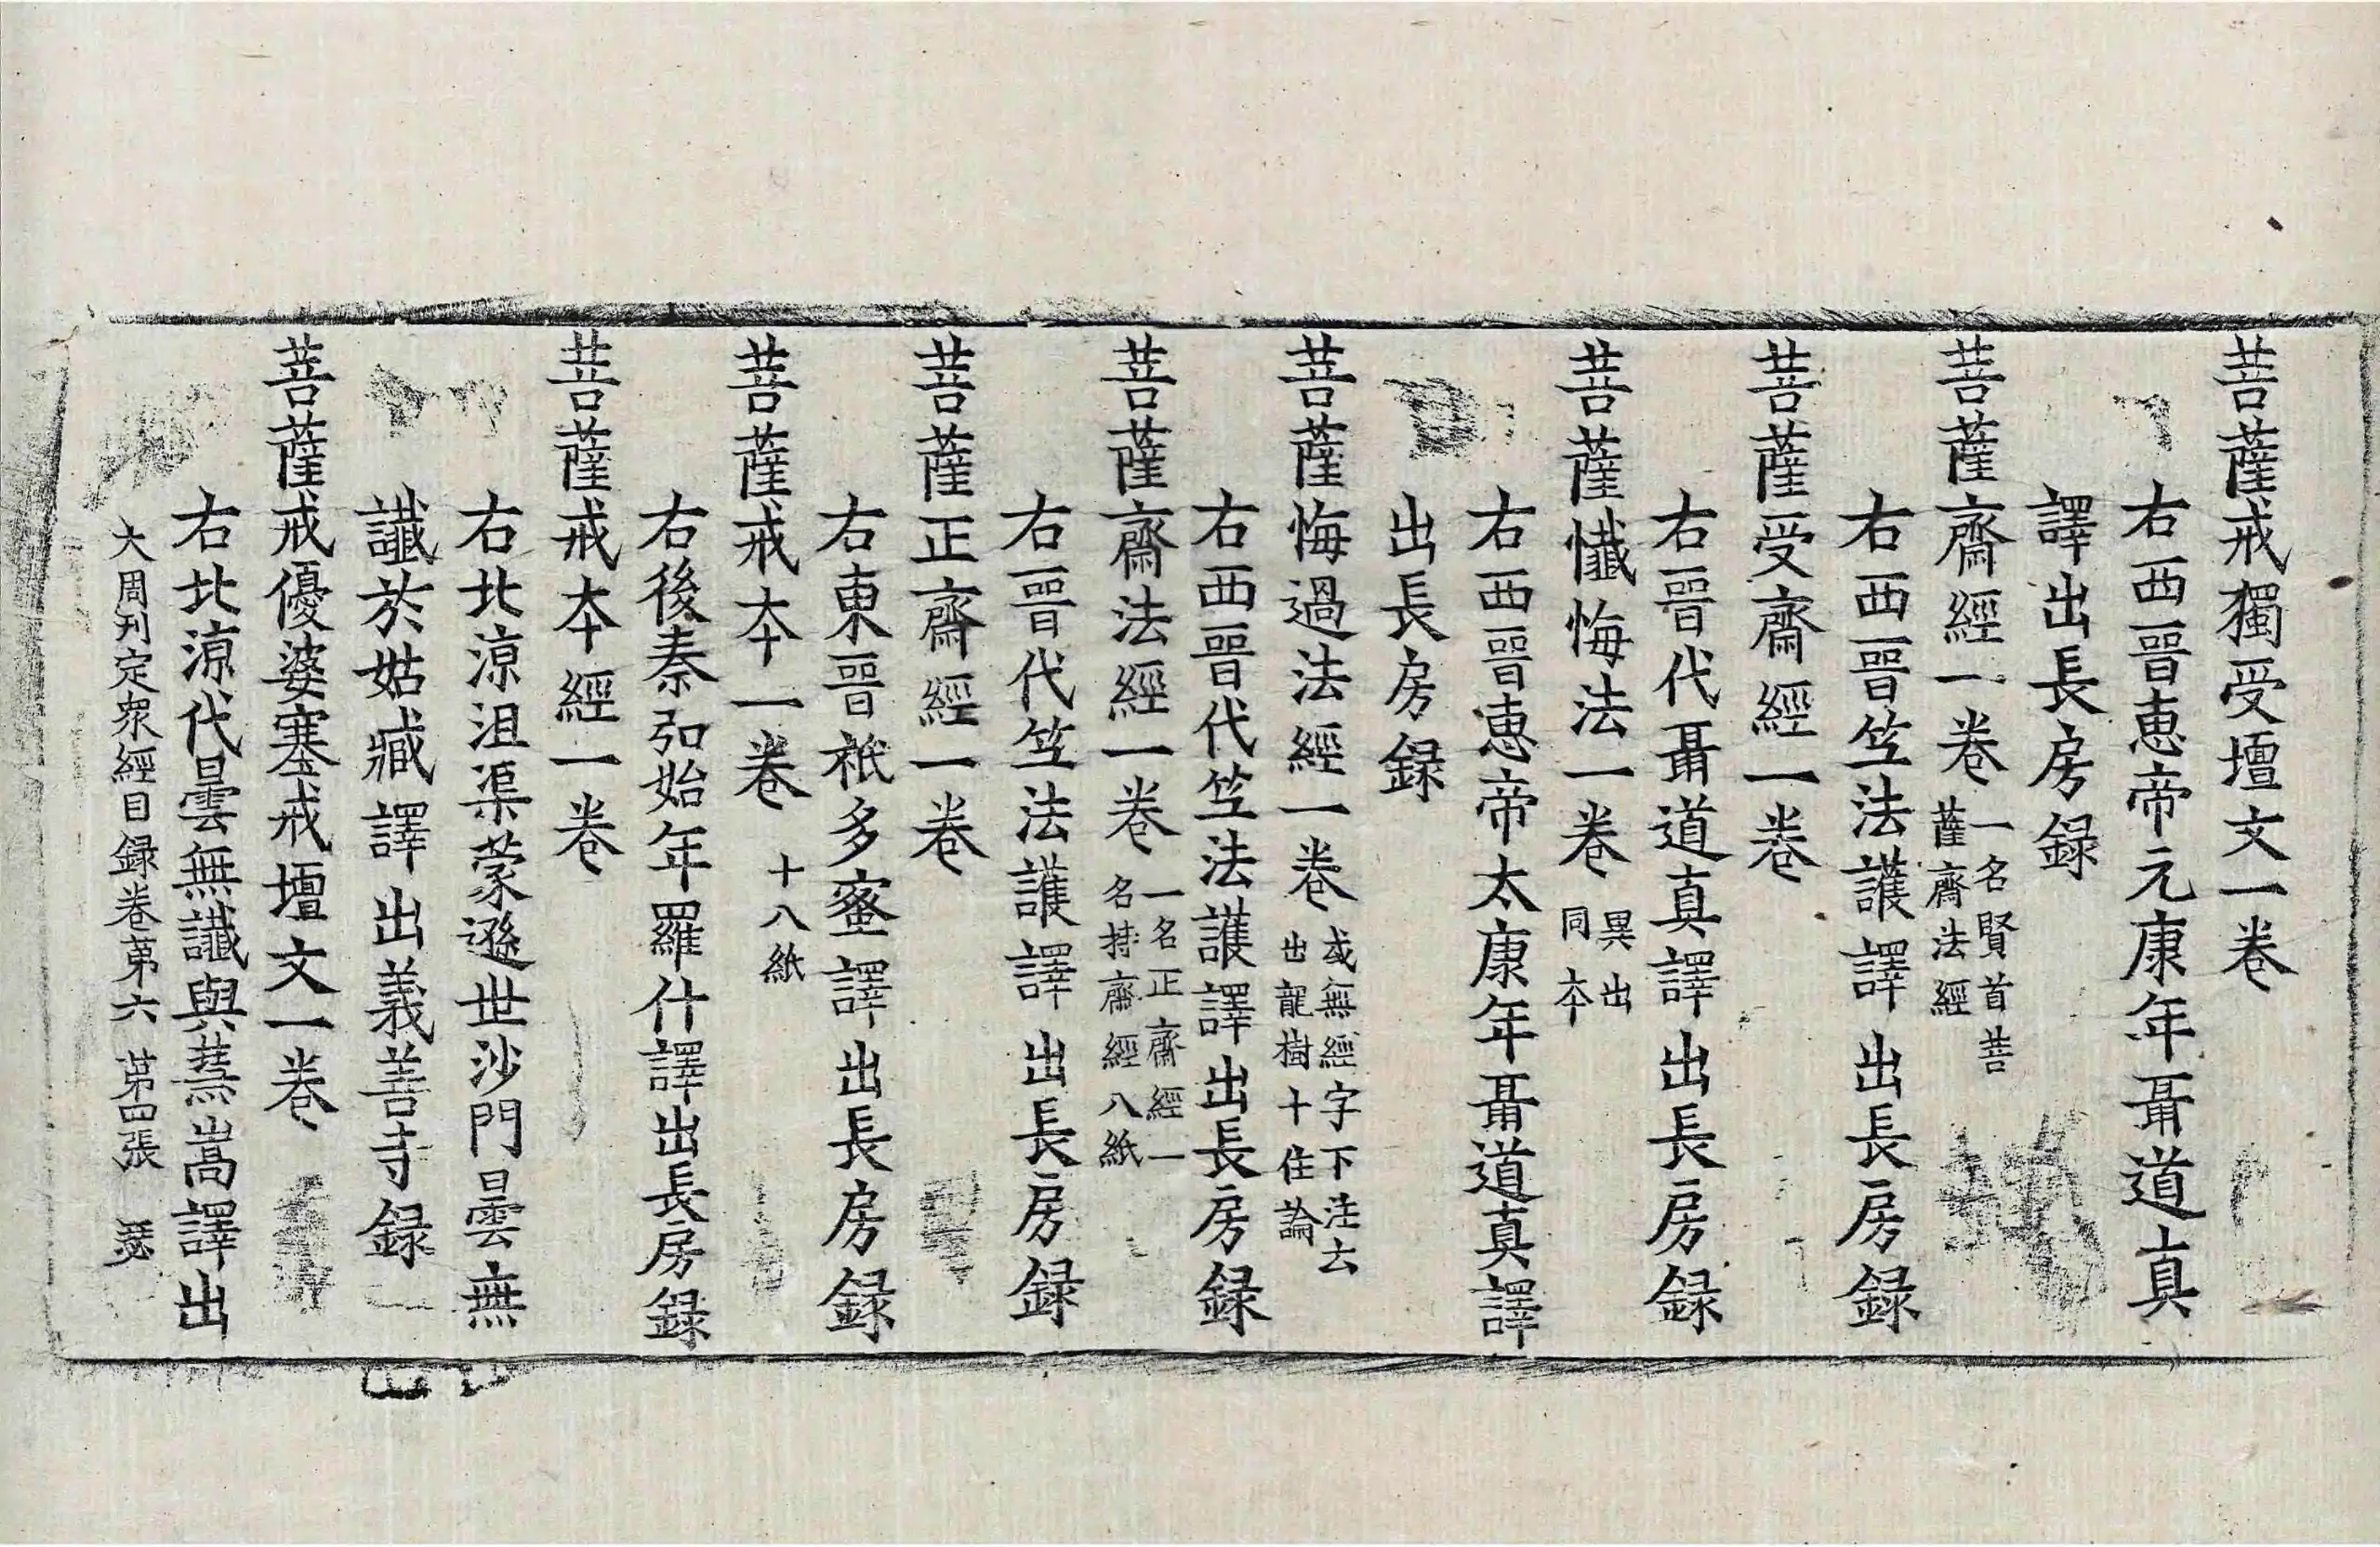 菩薩戒獨受壇文一卷
右西晉惠帝元康年聶道真
譯出長房録
菩薩齋經一卷 一名賢首菩
薩齋法經
右西晉竺法護譯出長房録
菩薩受齋經一卷
右晉代聶道真譯出長房録
菩薩懺悔法一卷 異出
同本
右西晉惠帝太康年聶道真譯
出長房録
菩薩悔過法經一卷 或無經字下注云
出龍樹十住論
右西晉代竺法護譯出長房録
菩薩齋法經一卷 一名正齋經一
名持齋經八紙
右晉代竺法護譯出長房録
菩薩正齋經一卷
右東晉祇多蜜譯出長房録
菩薩戒本一卷 十八紙
右後秦弘始年羅什譯出長房録
菩薩戒本經一卷
右北涼沮渠蒙遜世沙門曇無
讖於姑臧譯出義善寺録
菩薩戒優婆塞戒壇文一卷
右北涼代曇無讖與慧嵩譯出
大周刊定衆經目録卷第六 第四張 瑟